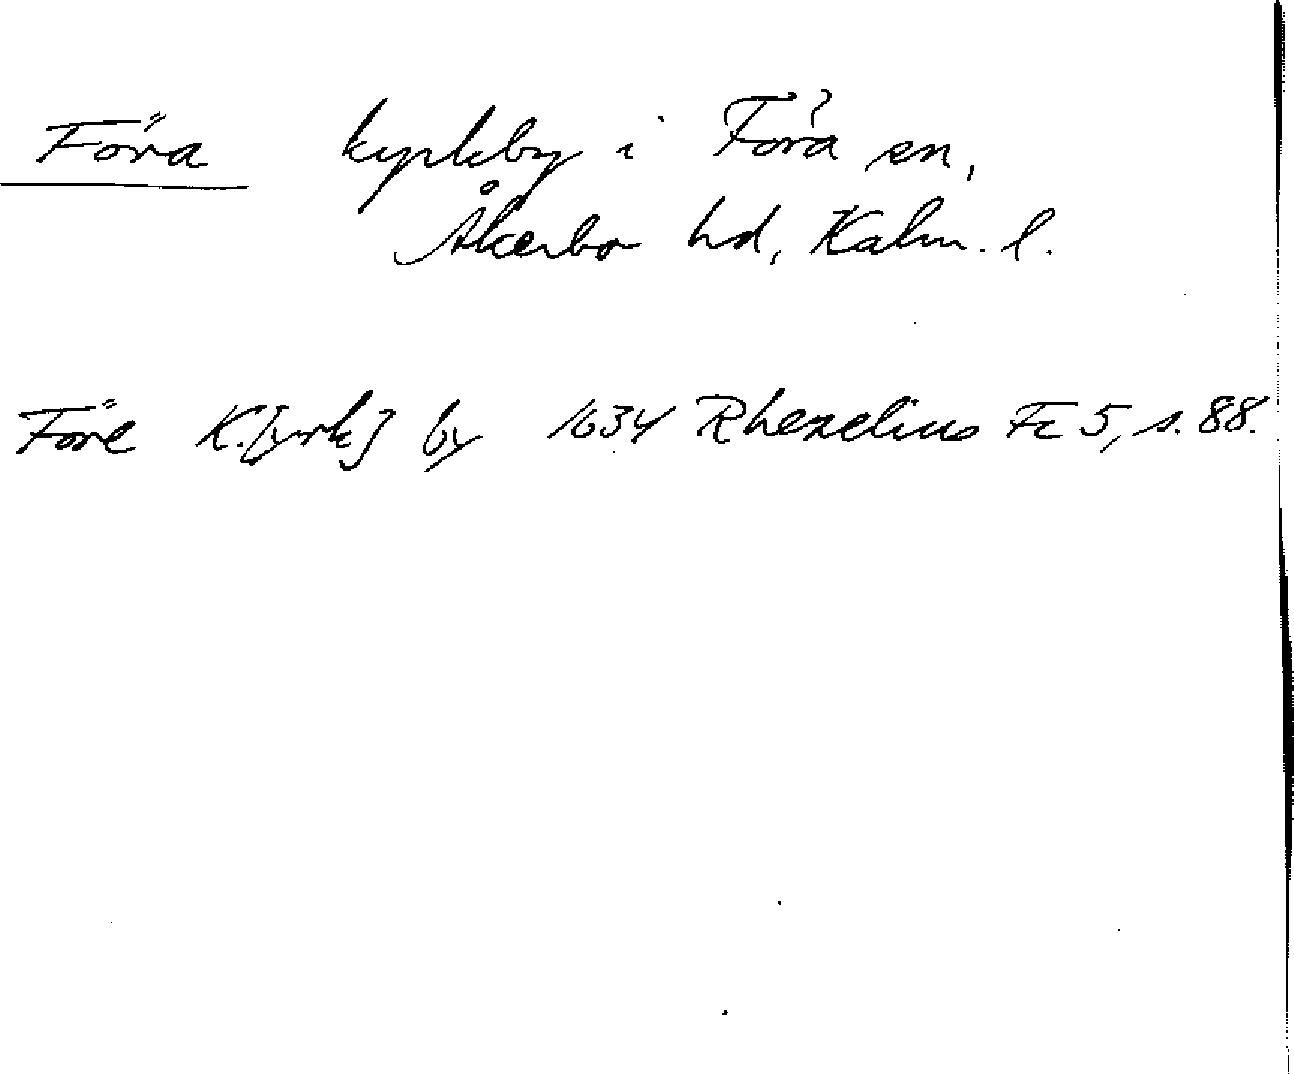 Föra kyrkby i Föra sn,
Åkerbo hd, Kalm. l.
Före K.[yrk] by 1634 Rhezelius Fc 5, s. 88.